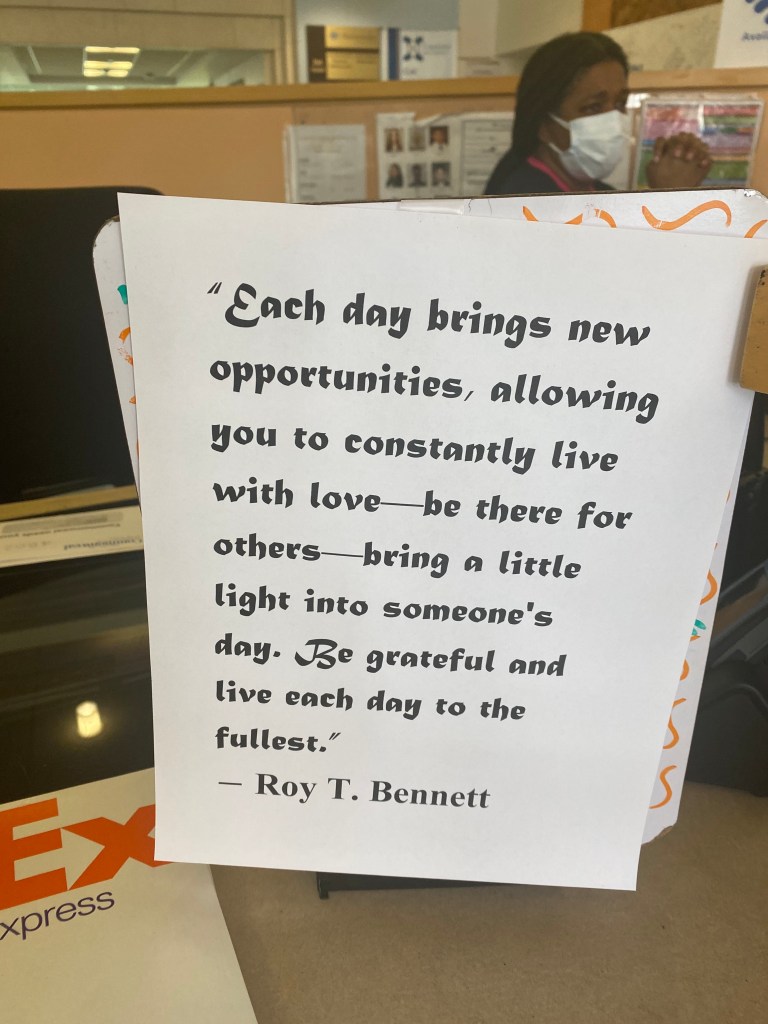 “Each day brings new
opportunities, allowing
you to constantly live
with love—be there for
others—bring a little
light into someone's
day. Be grateful and
live each day to the
fullest.”
— Roy T. Bennett
Ex
xpress